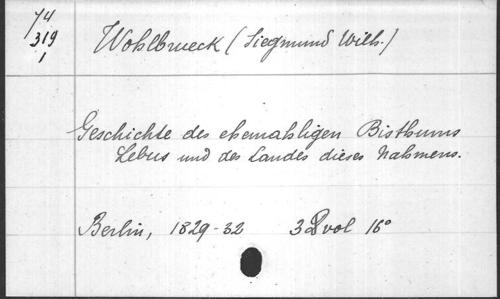 74
319
1
Wohlbrueck (Siegmund Wilh.)
Geschichte des ehemahligen Bisthums
Lebus und des Landes dieses Nahmens.
Berlin, 1829-32 3 vol 16°